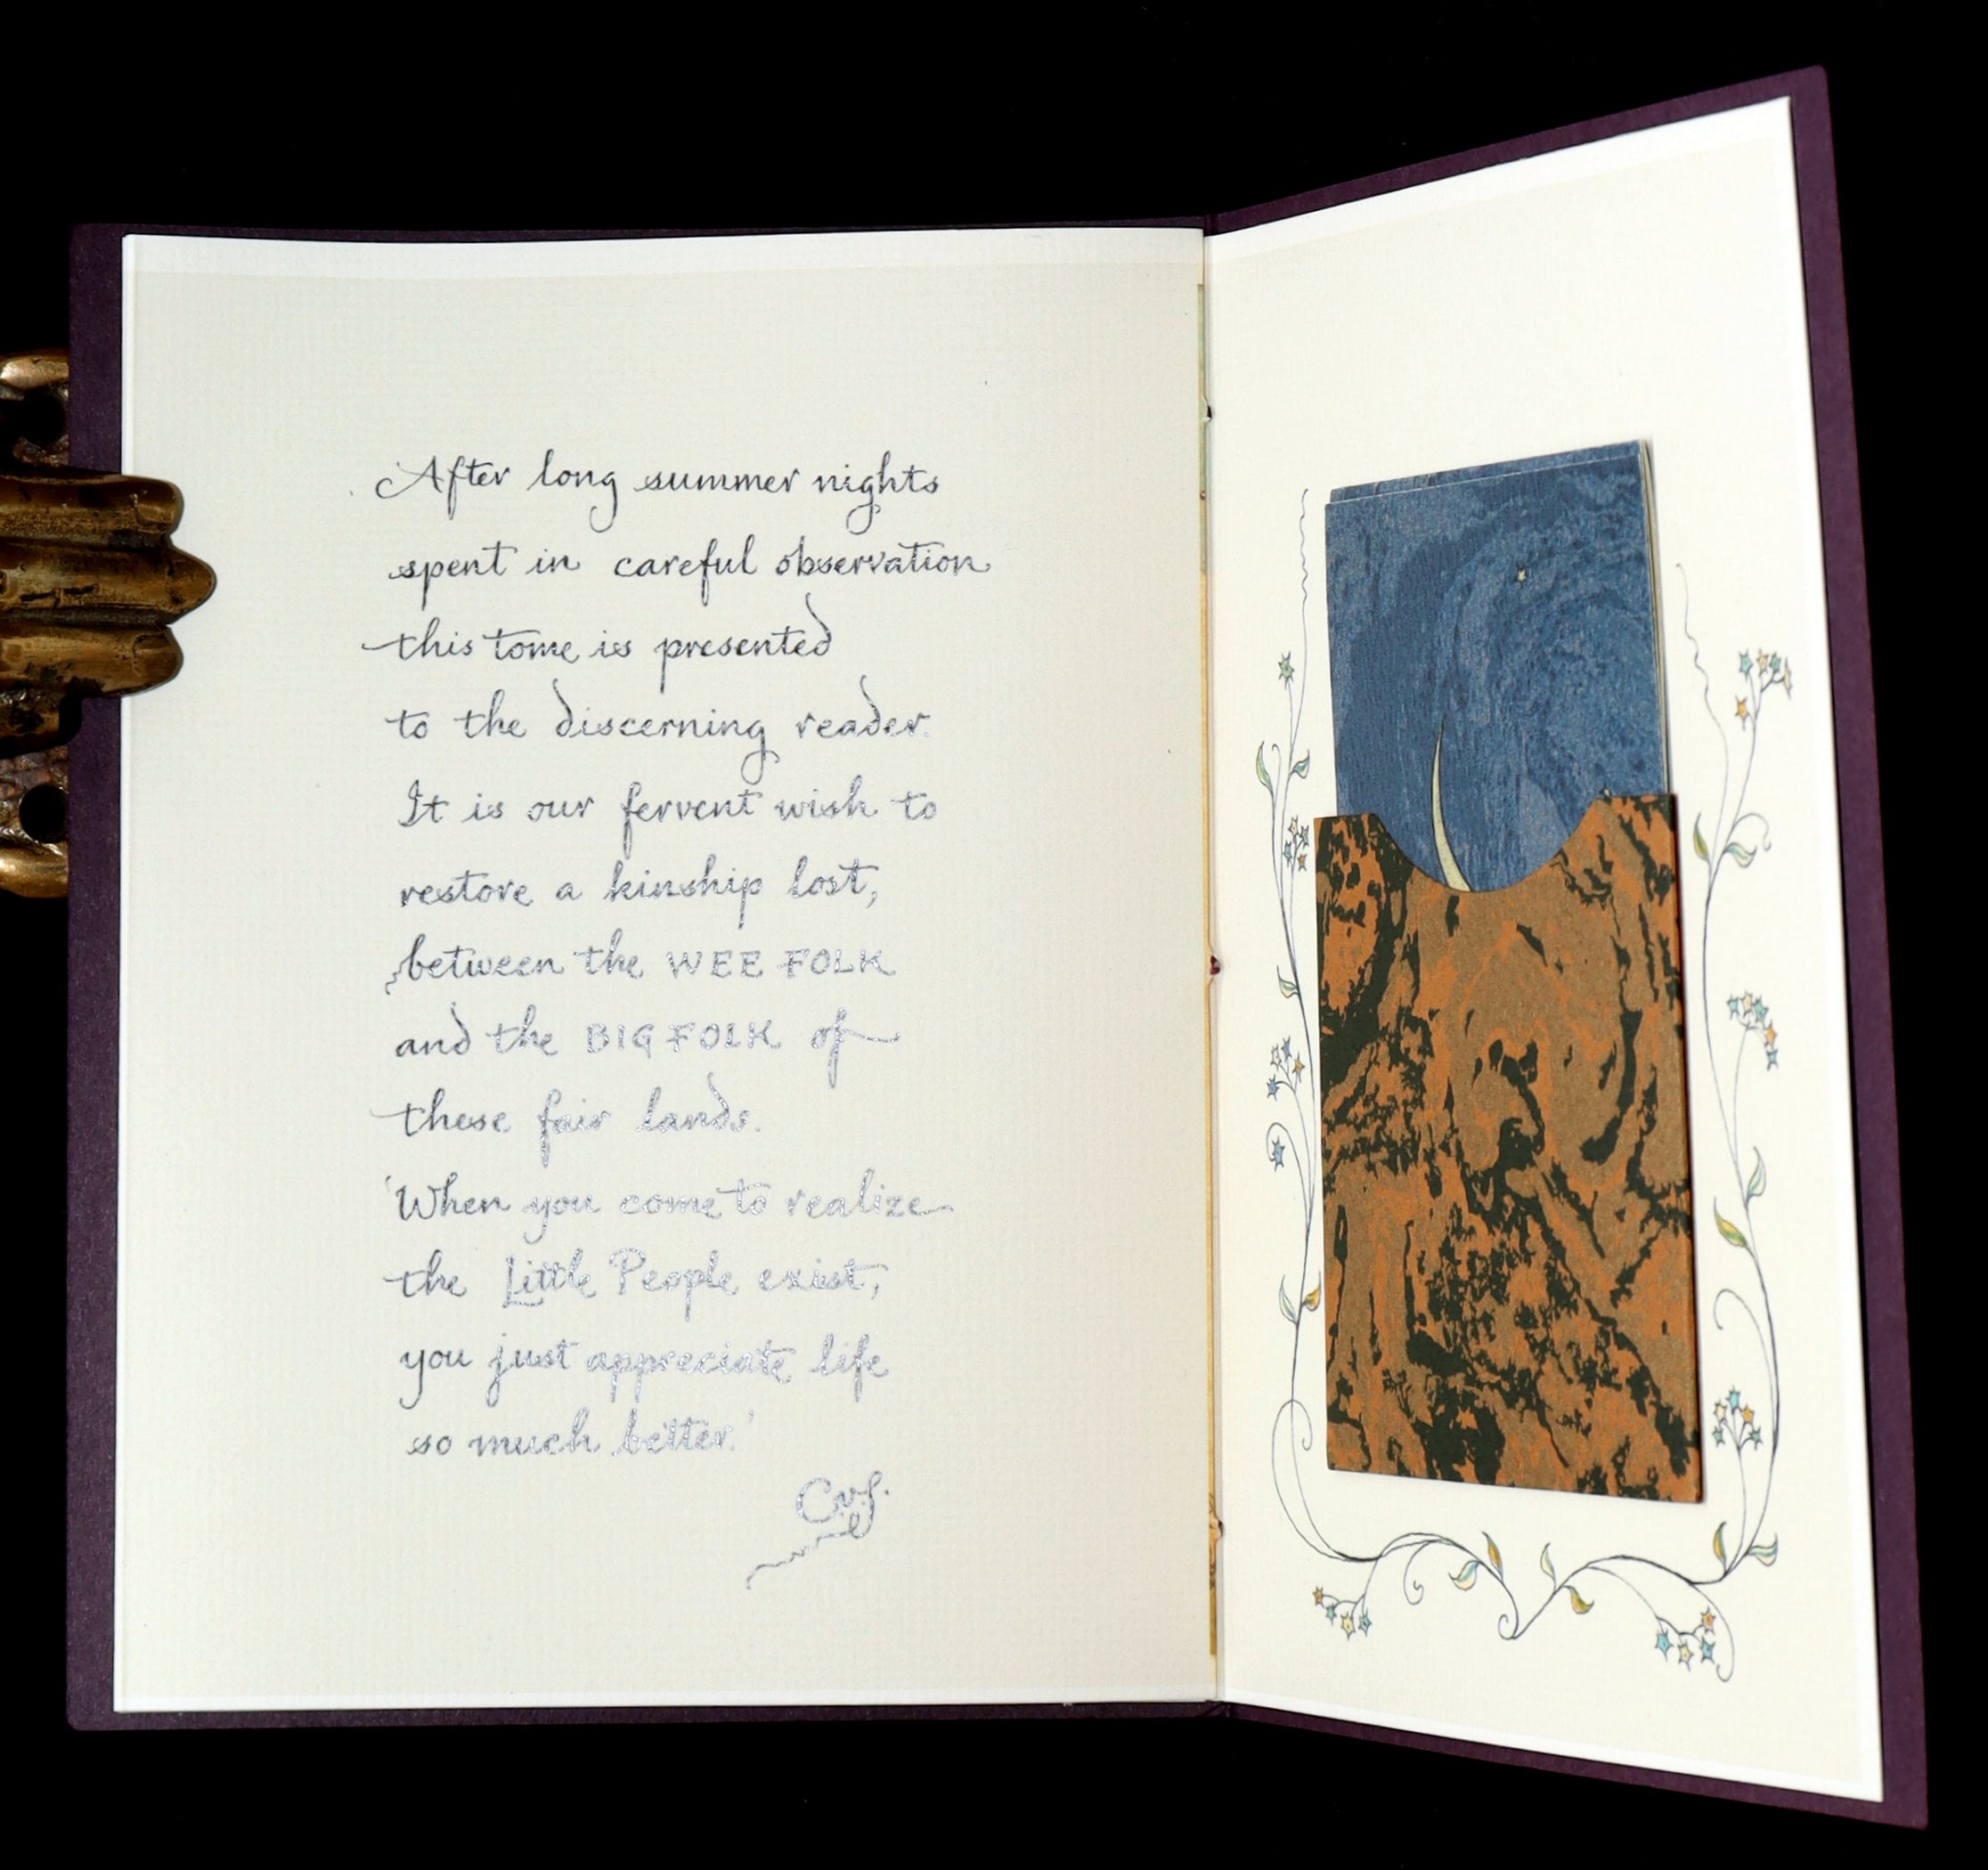 After long summer nights
spent in careful observation
this tome is presented
to the discerning reader.
It is our fervent wish to
restore a kinship lost,
between the WEE FOLK
and the BIG FOLK of
these fair lands.
'When you come to realize
the Little People exist,
you just appreciate life
so much better.'
C.v.S.